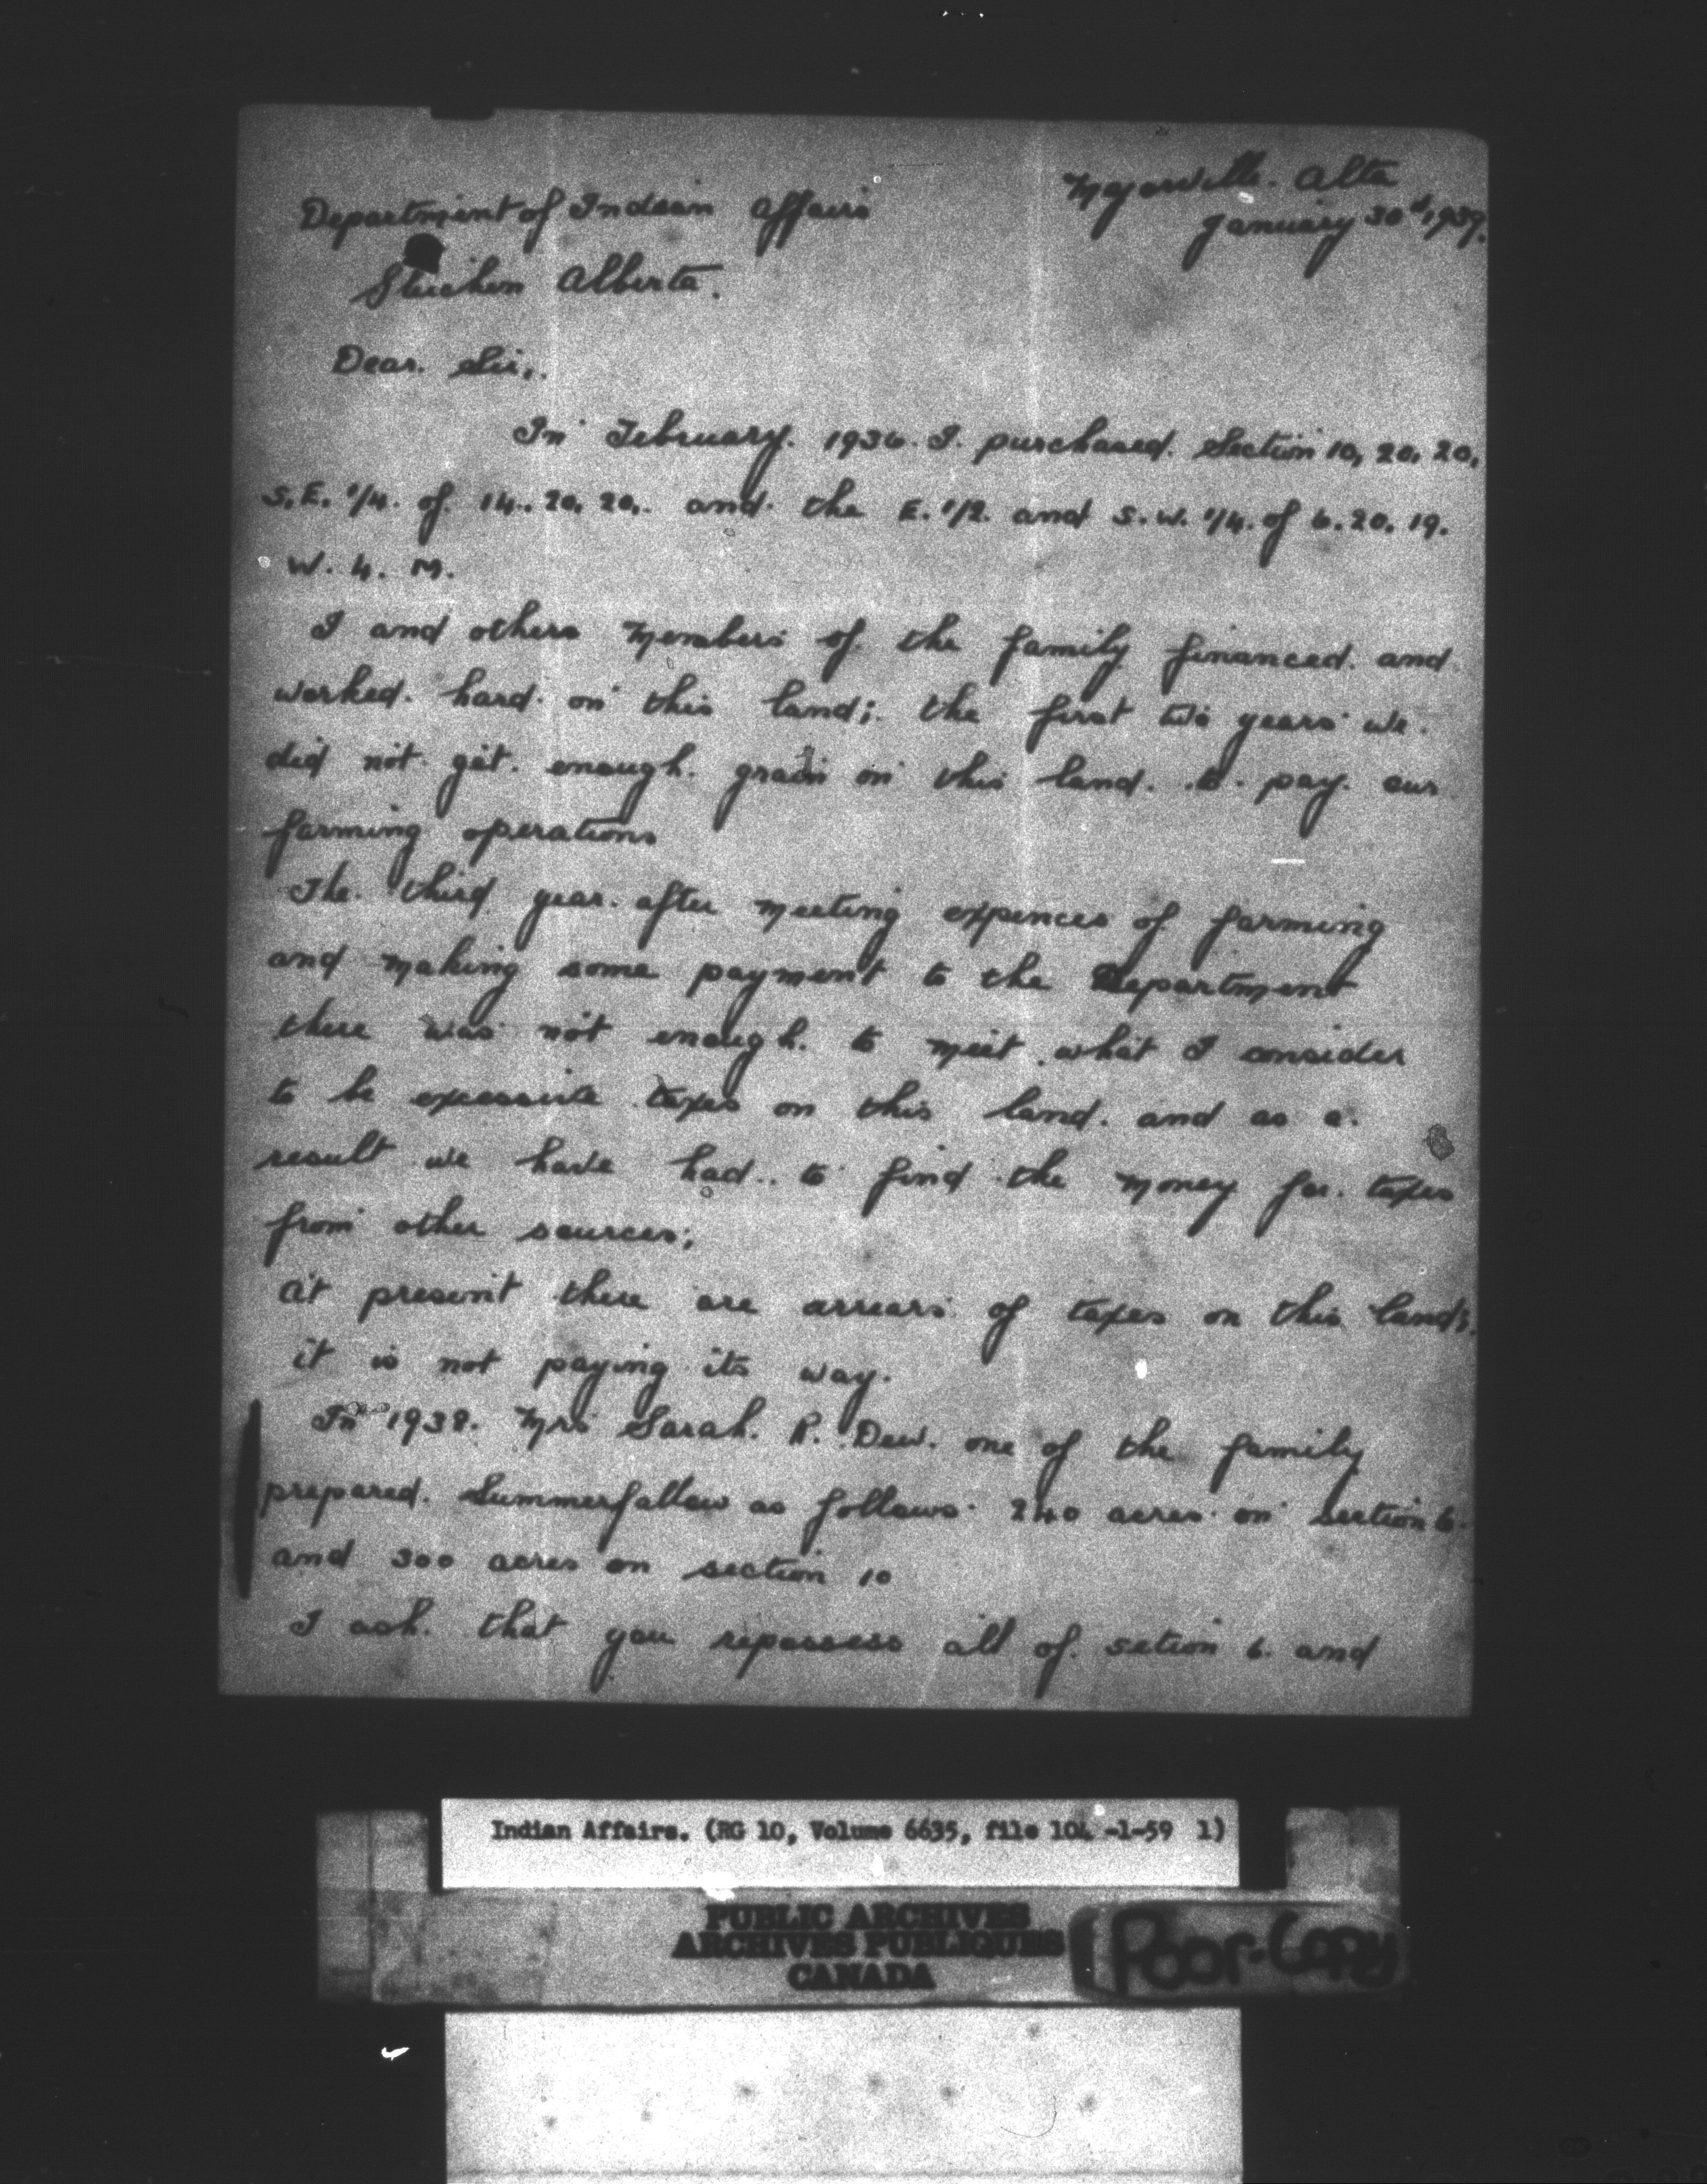 Majorville. Alta
January 30th 1939.
Department of Indian Affairs
Gleichen Alberta.
Dear. Sir,.
In February. 1936. I. purchased. Section 10, 20, 20,
S.E. 1/4. of. 14.. 20, 20,. and. the E. 1/2. and S.W. 1/4. of 6.20.19.
W. 4. M.
I and others Members of. the family financed. and
worked. hard. on this land;. the first two years we.
did not. get. enough. grain on this land. to. pay. our
farming operations
The. third year. after meeting expences of farming
and making some payment to the Department
there was not enough. to meet. what I consider
to be excessive taxes on this land. and as a.
result we have had.. to find the money for. taxes
from other sources;
At present there are arrears of taxes on this land;.
it is not paying its way.
In 1938. Mrs Sarah. R. Dew. one of the family
prepared. Summerfallow as follows. 240 acres. on section 6.
and 300 acres on section 10
I ask. that you repossess all of. setion 6. and
Indian Affairs. (RG 10, Volume 6635, file 104 -1-59 1)
PUBLIC ARCHIVES
ARCHIVES PUBLIQUES
CANADA
Poor-Copy